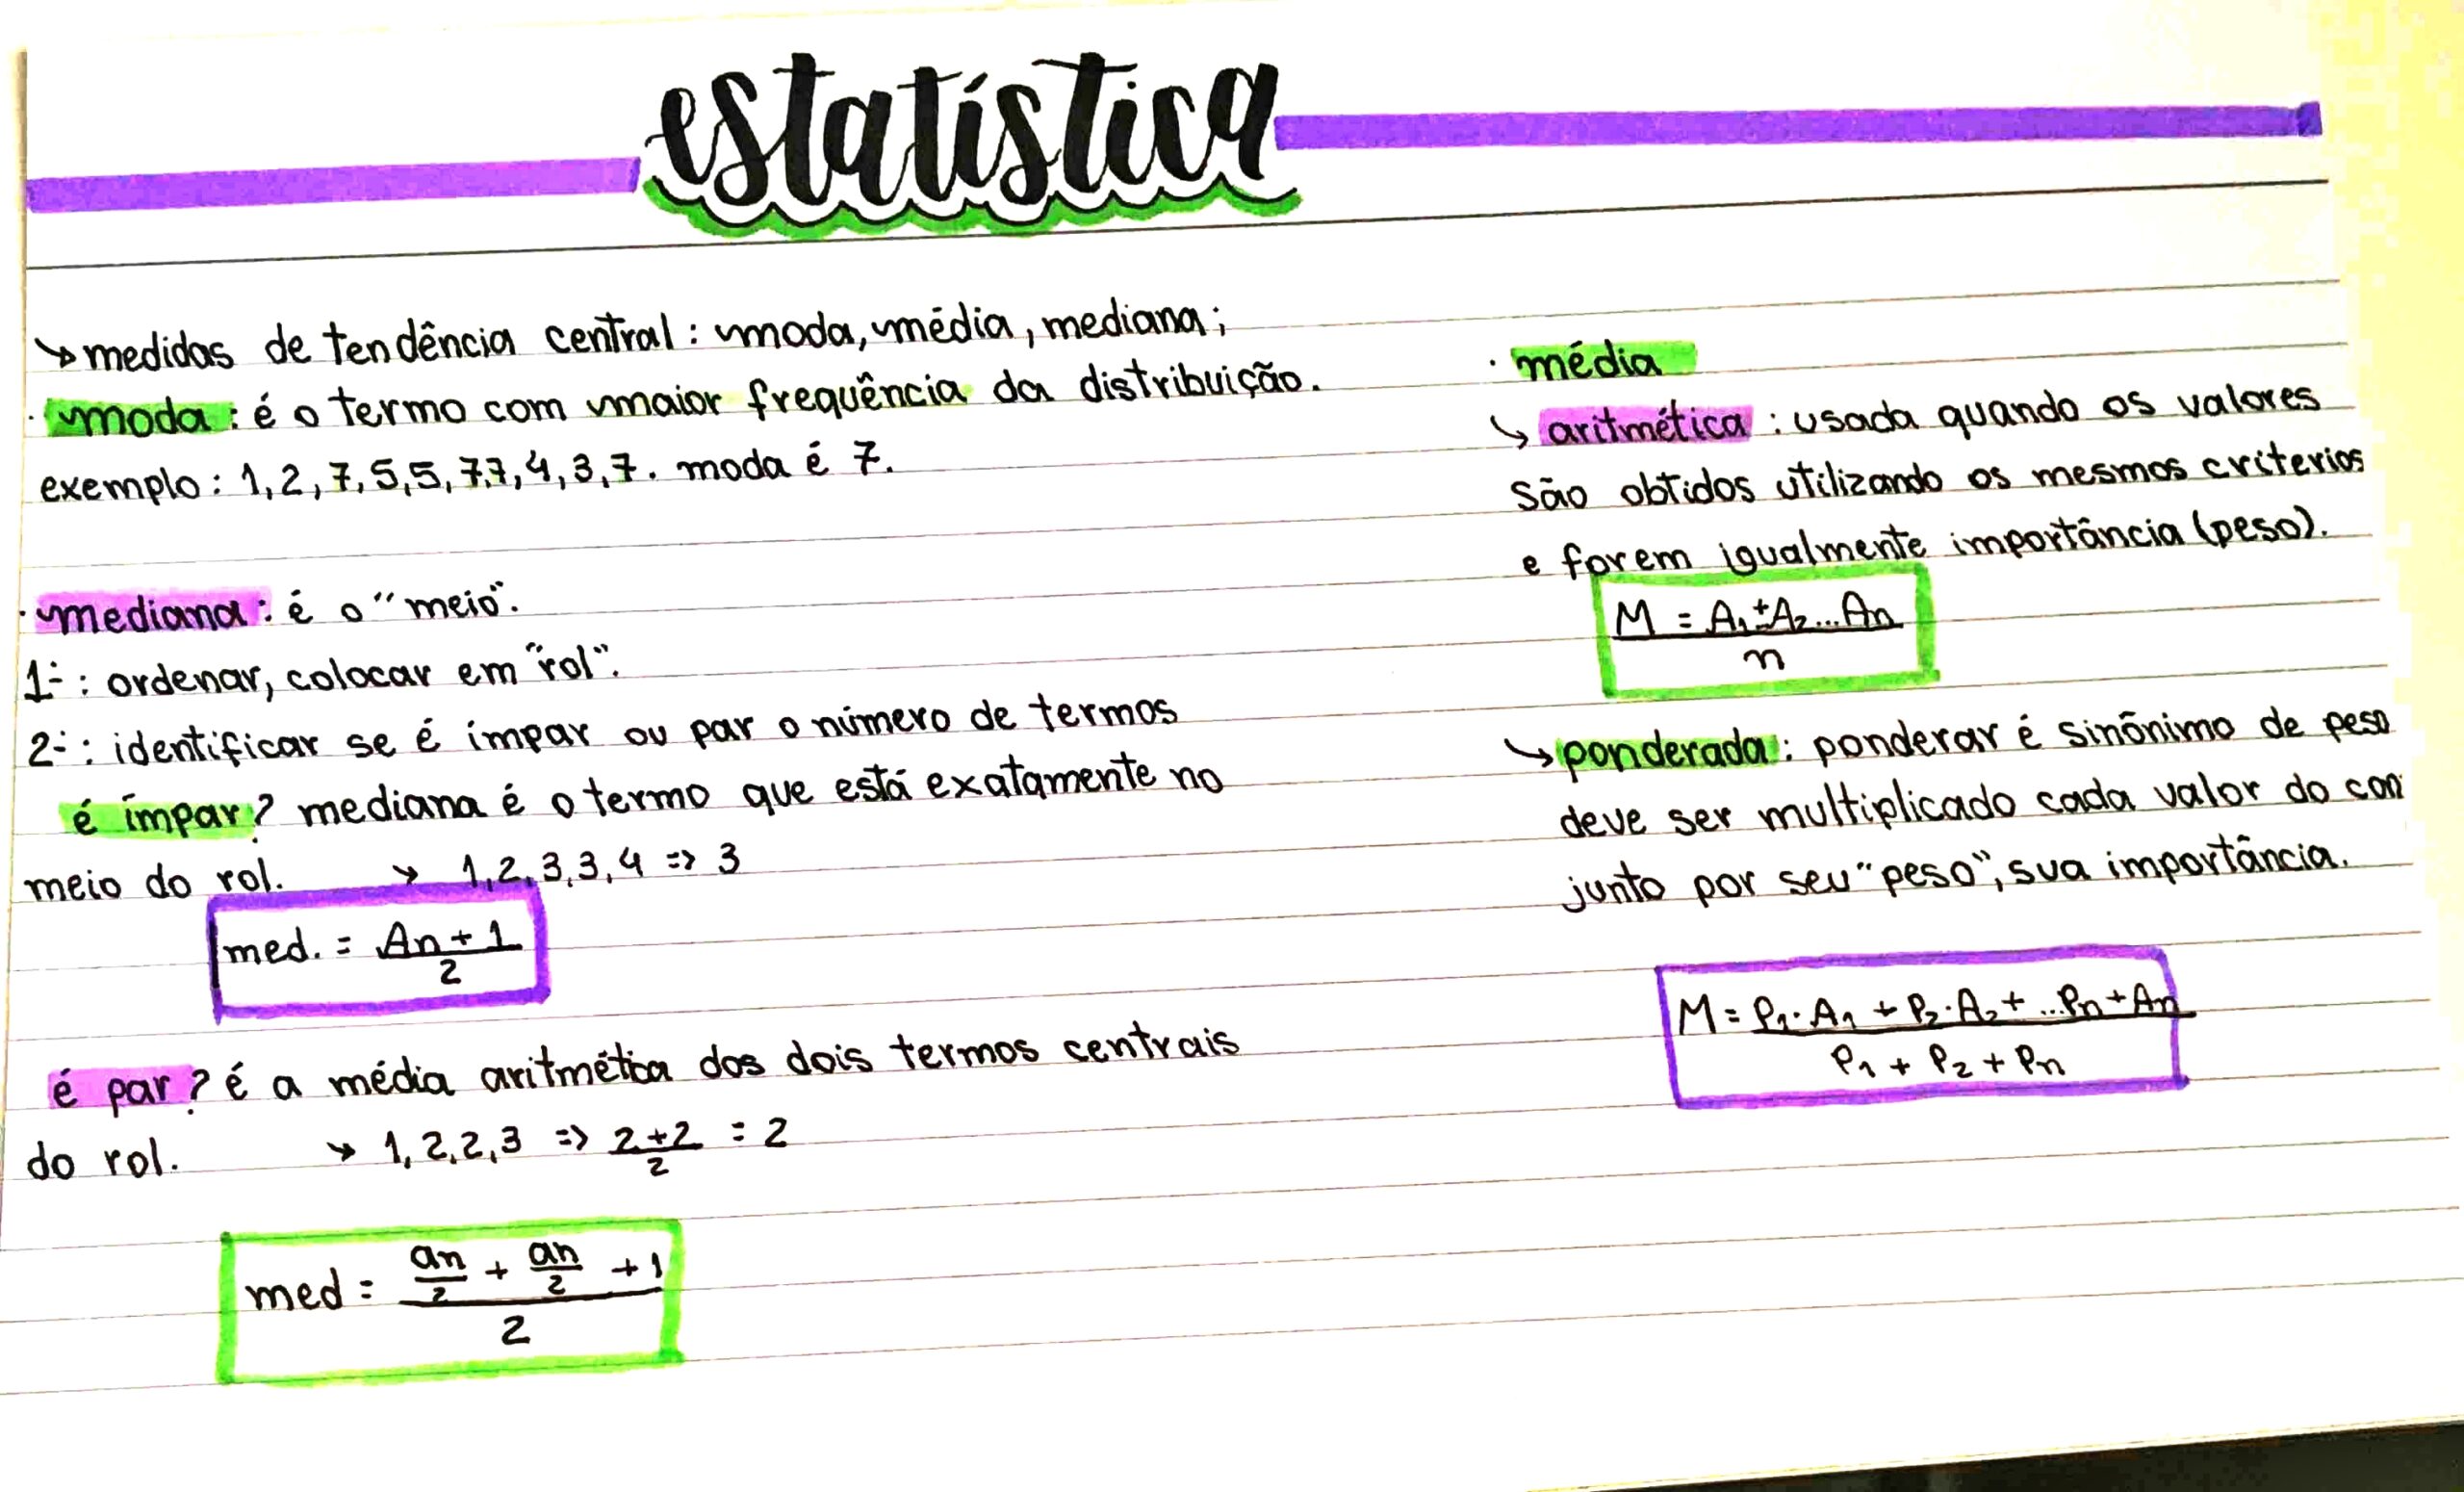 estatística
↘ medidas de tendência central: moda, média, mediana;
· moda: é o termo com maior frequência da distribuição.
exemplo: 1, 2, 7, 5, 5, 7, 7, 4, 3, 7. moda é 7.
· mediana: é o "meio".
1-: ordenar, colocar em "rol".
2-: identificar se é impar ou par o número de termos
é ímpar? mediana é o termo que está exatamente no
meio do rol. → 1, 2, 3, 3, 4 => 3
med. = An + 1
2
é par? é a média aritmética dos dois termos centrais
do rol. → 1, 2, 2, 3 => 2+2 = 2
2
med = an/2 + an/2 + 1
2
· média
↳ aritmética: usada quando os valores
são obtidos utilizando os mesmos criterios
e forem igualmente importância (peso).
M = A1 + A2 ... An
n
↳ ponderada: ponderar é sinônimo de peso
deve ser multiplicado cada valor do con
junto por seu "peso", sua importância.
M = P1 · A1 + P2 · A2 + ... Pn + An
P1 + P2 + Pn